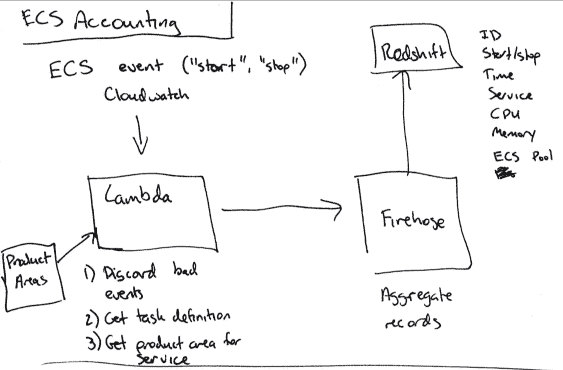 ECS Accounting
ECS event ("start", "stop")
Cloudwatch
Lambda
Product
Areas
1) Discard bad
events
2) Get task definition
3) Get product area for
Service
Firehose
Aggregate
records
Redshift
ID
Start/stop
Time
Service
CPU
Memory
ECS Pool